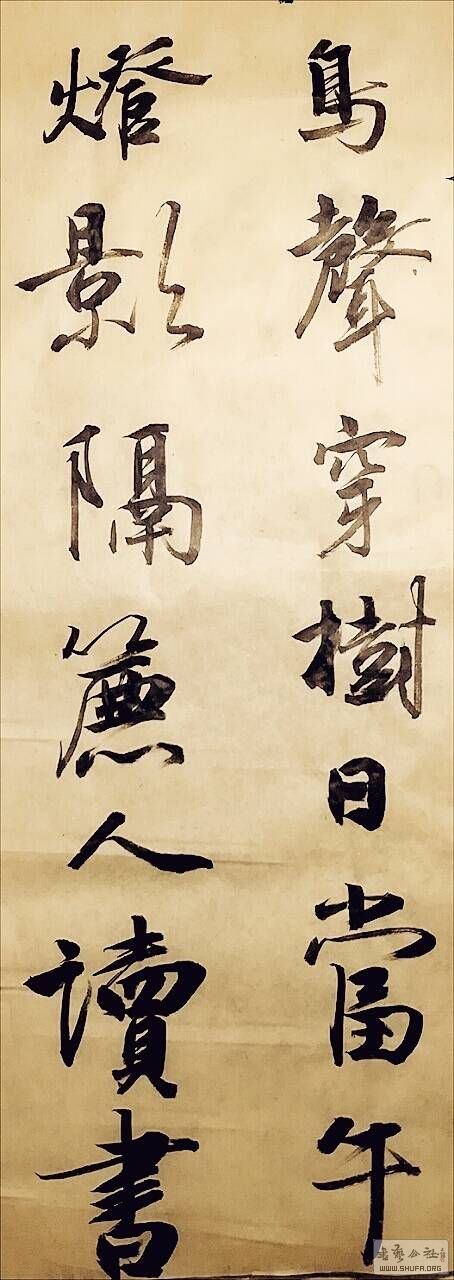 鳥聲穿樹日當午
燈影隔簾人讀書
WWW.SHUFA.ORG